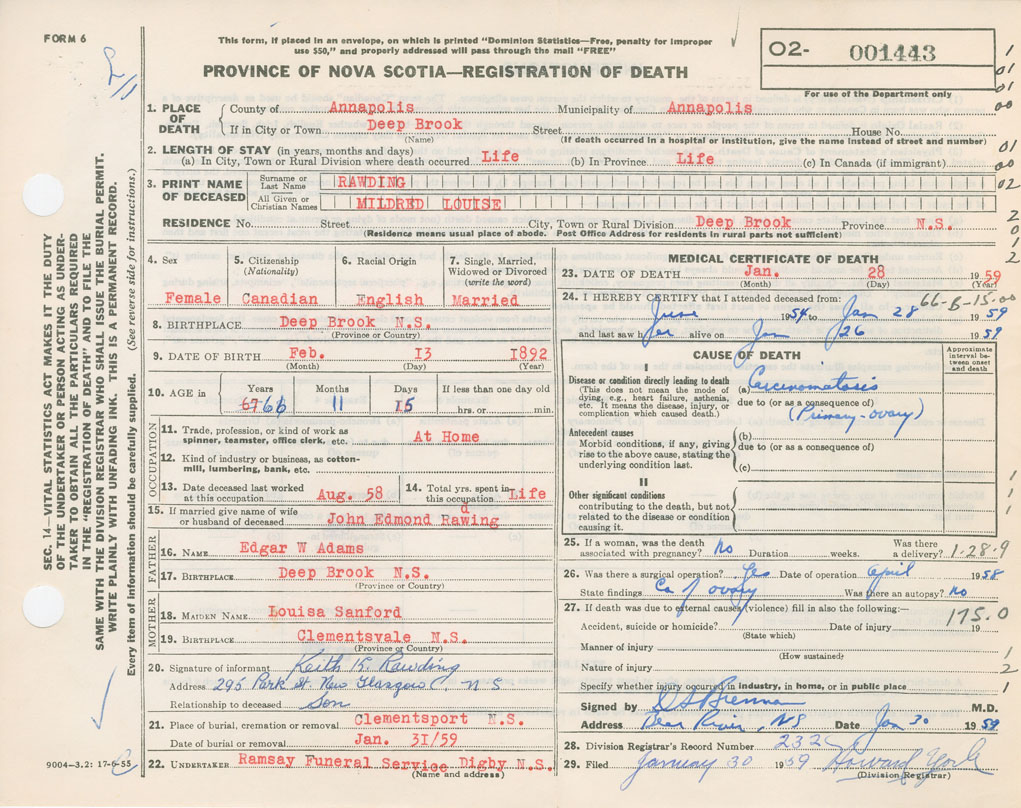 FORM 6
This form, if placed in an envelope, on which is printed "Dominion Statistics—Free, penalty for improper
use $50," and properly addressed will pass through the mail "FREE"
PROVINCE OF NOVA SCOTIA—REGISTRATION OF DEATH
O2- 001443
For use of the Department only
1. PLACE OF DEATH
County of Annapolis Municipality of Annapolis
If in City or Town Deep Brook Street House No.
(Name) (If death occurred in a hospital or institution, give the name instead of street and number)
2. LENGTH OF STAY (in years, months and days)
(a) In City, Town or Rural Division where death occurred Life (b) In Province Life (c) In Canada (if immigrant)
3. PRINT NAME OF DECEASED
Surname or Last Name RAWDING
All Given or Christian Names MILDRED LOUISE
RESIDENCE No. Street City, Town or Rural Division Deep Brook Province N.S.
(Residence means usual place of abode. Post Office Address for residents in rural parts not sufficient)
4. Sex
Female
5. Citizenship
(Nationality)
Canadian
6. Racial Origin
English
7. Single, Married,
Widowed or Divorced
(write the word)
Married
8. BIRTHPLACE Deep Brook N.S.
(Province or Country)
9. DATE OF BIRTH Feb. 13 1892
(Month) (Day) (Year)
10. AGE in
Years Months Days If less than one day old
67 66 11 15 hrs. or min.
OCCUPATION
11. Trade, profession, or kind of work as
spinner, teamster, office clerk, etc. At Home
12. Kind of industry or business, as cotton-
mill, lumbering, bank, etc.
13. Date deceased last worked
at this occupation Aug. 58
14. Total yrs. spent in
this occupation Life
15. If married give name of wife
or husband of deceased John Edmond Rawding
FATHER
16. NAME Edgar W Adams
17. BIRTHPLACE Deep Brook N.S.
(Province or Country)
MOTHER
18. MAIDEN NAME Louisa Sanford
19. BIRTHPLACE Clementsvale N.S.
(Province or Country)
20. Signature of informant Keith K. Rawding
Address 295 Park St. New Glasgow, N S
Relationship to deceased Son
21. Place of burial, cremation or removal Clementsport N.S.
Date of burial or removal Jan. 31/59
22. UNDERTAKER Ramsay Funeral Service Digby N.S.
(Name and address)
MEDICAL CERTIFICATE OF DEATH
23. DATE OF DEATH Jan. 28 1959
(Month) (Day) (Year)
24. I HEREBY CERTIFY that I attended deceased from: 66-B-15-00
June 1954 to Jan 28 1959
and last saw her alive on Jan 26 1959
CAUSE OF DEATH
Approximate
interval be-
tween onset
and death
I
Disease or condition directly leading to death
(This does not mean the mode of
dying, e.g., heart failure, asthenia,
etc. It means the disease, injury, or
complication which caused death.)
(a) Carcinomatosis
due to (or as a consequence of)
(Primary - ovary)
Antecedent causes
Morbid conditions, if any, giving
rise to the above cause, stating the
underlying condition last.
(b)
due to (or as a consequence of)
(c)
II
Other significant conditions
contributing to the death, but not
related to the disease or condition
causing it.
25. If a woman, was the death
associated with pregnancy? No Duration weeks. Was there
a delivery? 1-28-9
26. Was there a surgical operation? Yes Date of operation April 1958
State findings Ca of ovary Was there an autopsy? No
27. If death was due to external causes (violence) fill in also the following:—
175.0
Accident, suicide or homicide? Date of injury 19
(State which)
Manner of injury
(How sustained)
Nature of injury
Specify whether injury occurred in industry, in home, or in public place
Signed by D S Brennan M.D.
Address Bear River, NS Date Jan 30 1959
28. Division Registrar's Record Number 232
29. Filed January 30 1959 Howard York
(Division Registrar)
1
01
01
00
01
00
02
2
0
1
2
1
1
1
1
2
1
SEC. 14—VITAL STATISTICS ACT MAKES IT THE DUTY
OF THE UNDERTAKER OR PERSON ACTING AS UNDER-
TAKER TO OBTAIN ALL THE PARTICULARS REQUIRED
IN THE "REGISTRATION OF DEATH" AND TO FILE THE
SAME WITH THE DIVISION REGISTRAR WHO SHALL ISSUE THE BURIAL PERMIT.
WRITE PLAINLY WITH UNFADING INK. THIS IS A PERMANENT RECORD.
Every item of information should be carefully supplied. (See reverse side for instructions.)
9004-3.2: 17-6-55